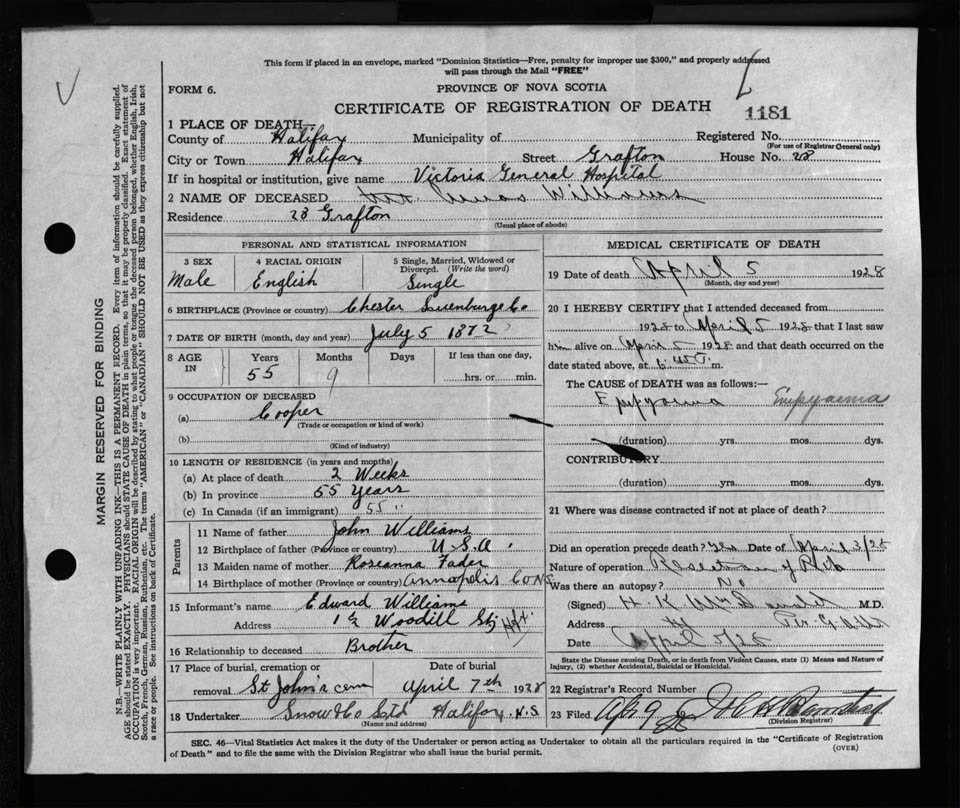 This form if placed in an envelope, marked "Dominion Statistics—Free, penalty for improper use $300," and properly addressed
will pass through the Mail "FREE"
FORM 6.
PROVINCE OF NOVA SCOTIA
CERTIFICATE OF REGISTRATION OF DEATH
1181
1 PLACE OF DEATH—
County of Halifax Municipality of Registered No.
(For use of Registrar General only)
City or Town Halifax Street Grafton House No. 28
If in hospital or institution, give name Victoria General Hospital
2 NAME OF DECEASED Amos Williams
Residence 28 Grafton
(Usual place of abode)
PERSONAL AND STATISTICAL INFORMATION
3 SEX
Male
4 RACIAL ORIGIN
English
5 Single, Married, Widowed or
Divorced. (Write the word)
Single
6 BIRTHPLACE (Province or country) Chester Luenburge Co
7 DATE OF BIRTH (month, day and year) July 5 1872
8 AGE
IN
Years
55
Months
9
Days
If less than one day,
hrs. or min.
9 OCCUPATION OF DECEASED
(a) Cooper
(Trade or occupation or kind of work)
(b)
(Kind of industry)
10 LENGTH OF RESIDENCE (in years and months)
(a) At place of death 2 Weeks
(b) In province 55 Years
(c) In Canada (if an immigrant) 55 "
Parents
11 Name of father John Williams
12 Birthplace of father (Province or country) U.S.A.
13 Maiden name of mother Roseanna Fader
14 Birthplace of mother (Province or country) Annapolis Co NS
15 Informant's name Edward Williams
Address 1 ½ Woodill St, Hfx
16 Relationship to deceased Brother
17 Place of burial, cremation or
removal St John's cem
Date of burial
April 7th 1928
18 Undertaker Snow & Co Ltd Halifax, N.S.
(Name and address)
MEDICAL CERTIFICATE OF DEATH
19 Date of death April 5 1928
(Month, day and year)
20 I HEREBY CERTIFY that I attended deceased from
1928 to April 5 1928 that I last saw
him alive on April 5 1928 and that death occurred on the
date stated above, at m.
The CAUSE OF DEATH was as follows:—
Empyaema Empyaema
(duration) yrs. mos. dys.
CONTRIBUTORY
(duration) yrs. mos. dys.
21 Where was disease contracted if not at place of death?
Did an operation precede death? yes Date of April 3/28
Nature of operation Resection of Rib
Was there an autopsy? No
(Signed) H. K. M.D.
Address
Date April 5/28
State the Disease causing Death, or in death from Violent Causes, state (1) Means and Nature of
Injury, (2) whether Accidental, Suicidal or Homicidal.
22 Registrar's Record Number
23 Filed Apr 9
(Division Registrar)
SEC. 46—Vital Statistics Act makes it the duty of the Undertaker or person acting as Undertaker to obtain all the particulars required in the "Certificate of Registration
of Death" and to file the same with the Division Registrar who shall issue the burial permit.
(OVER)
MARGIN RESERVED FOR BINDING
N.B.—WRITE PLAINLY WITH UNFADING INK—THIS IS A PERMANENT RECORD. Every item of information should be carefully supplied.
AGE should be stated EXACTLY. PHYSICIANS should STATE CAUSE OF DEATH in plain terms, so that it may be properly classified. Exact statement of
OCCUPATION is very important. RACIAL ORIGIN will be described by stating to what people or tongue the deceased person belonged, whether English, Irish,
Scotch, French, German, Russian, Ruthenian, etc. The terms "AMERICAN" or "CANADIAN" SHOULD NOT BE USED as they express citizenship but not
a race or people. See instructions on back of Certificate.